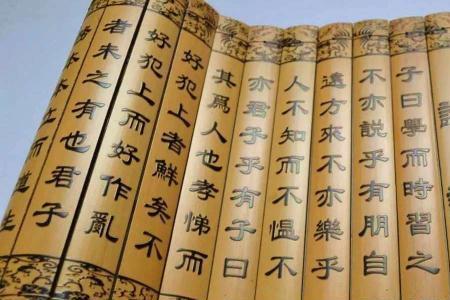 子曰學而時習之
不亦說乎有朋自
遠方來不亦樂乎
人不知而不慍不
亦君子乎有子曰
其爲人也孝悌而
好犯上者鮮矣不
好犯上而好作亂
者未之有也君子
本本立而道生